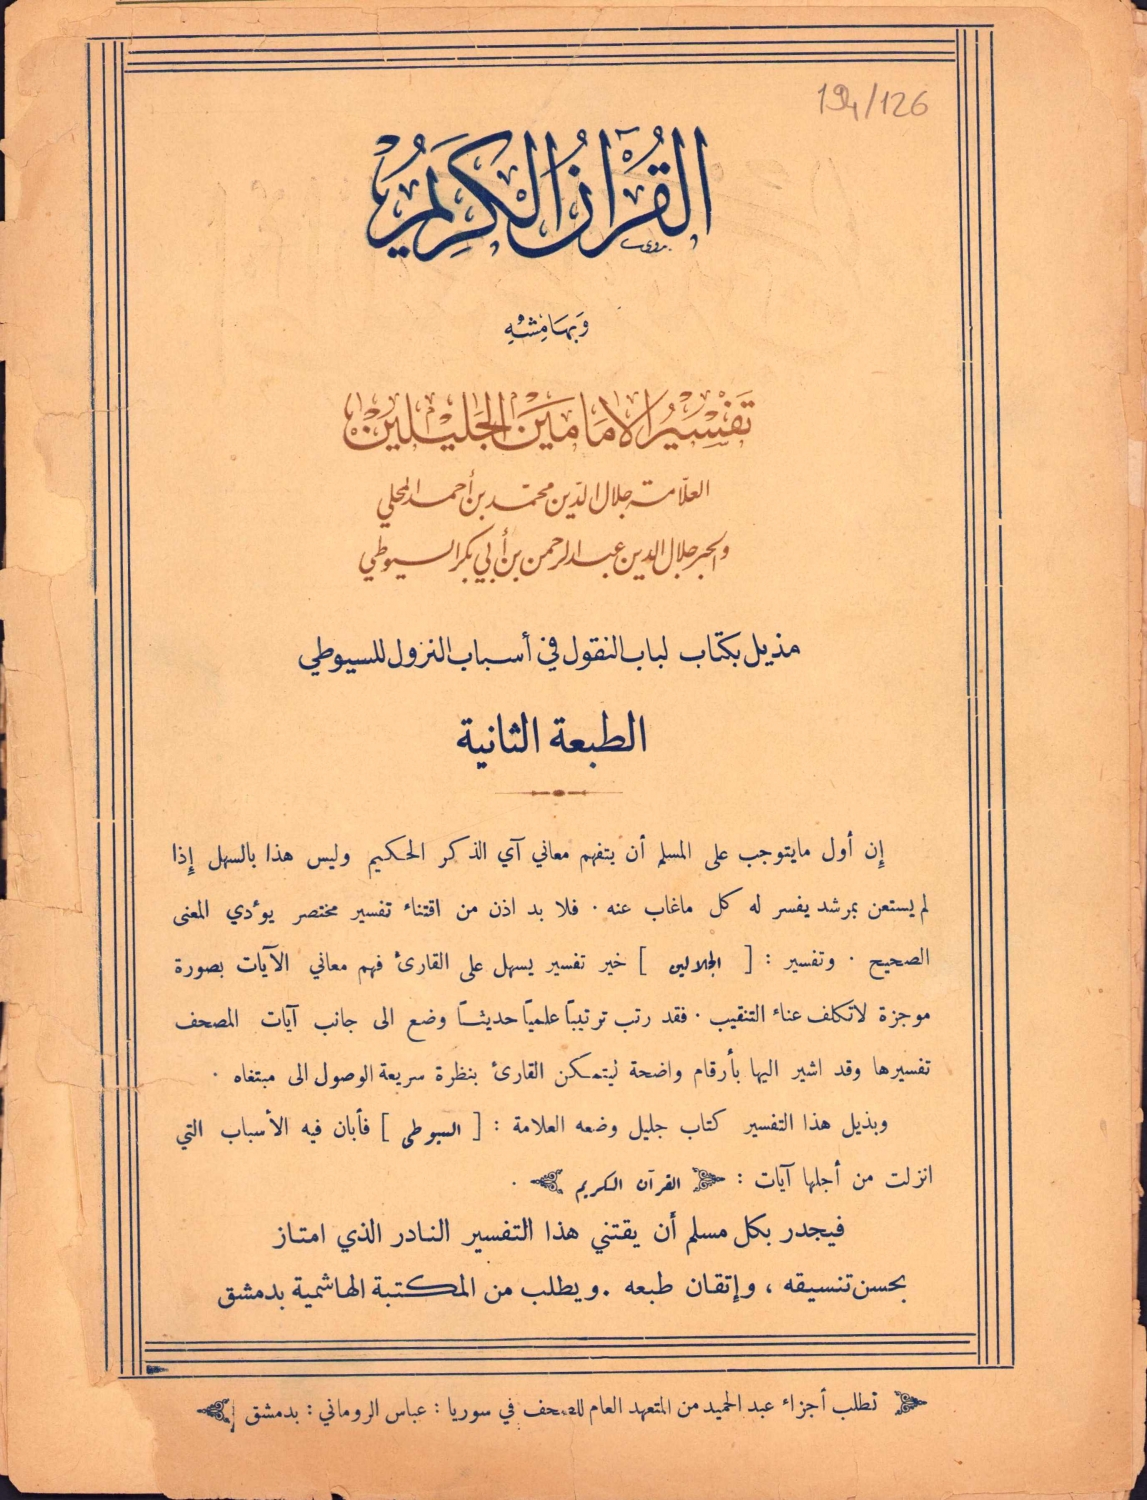 194/126
القُرْآنُ الكَرِيمُ
وَبِهَامِشِهِ
تَفْسِيرُ الامَامَيْنِ الجَلِيلَيْنِ
العلّامة جلال الدّين محمّد بن أحمد المحلي
والحبر جلال الدين عبد الرحمن بن أبي بكر السيوطي
مذيل بكتاب لباب النقول في أسباب النزول للسيوطي
الطبعة الثانية
إن أول مايتوجب على المسلم أن يتفهم معاني آي الذكر الحكيم وليس هذا بالسهل إذا
لم يستعن بمرشد يفسر له كل ماغاب عنه . فلا بد اذن من اقتناء تفسير مختصر يؤدي المعنى
الصحيح . وتفسير : [ الجلالين ] خير تفسير يسهل على القارئ فهم معاني الآيات بصورة
موجزة لاتكلف عناء التنقيب . فقد رتب ترتيباً علمياً حديثاً وضع الى جانب آيات المصحف
تفسيرها وقد اشير اليها بأرقام واضحة ليتمكن القارئ بنظرة سريعة الوصول الى مبتغاه .
وبذيل هذا التفسير كتاب جليل وضعه العلامة : [ السيوطي ] فأبان فيه الأسباب التي
انزلت من أجلها آيات : القرآن الكريم .
فيجدر بكل مسلم أن يقتني هذا التفسير النادر الذي امتاز
بحسن تنسيقه ، وإتقان طبعه . ويطلب من المكتبة الهاشمية بدمشق
تطلب أجزاء عبد الحميد من المتعهد العام للمصحف في سوريا : عباس الروماني : بدمشق